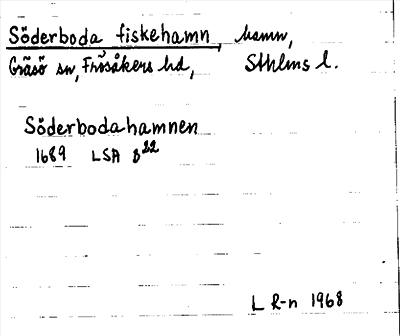 Söderboda fiskehamn, hamn,
Gräsö sn, Frösåkers hd, Sthlms l.
Söderbodahamnen
1689 LSA B22
L R-n 1968